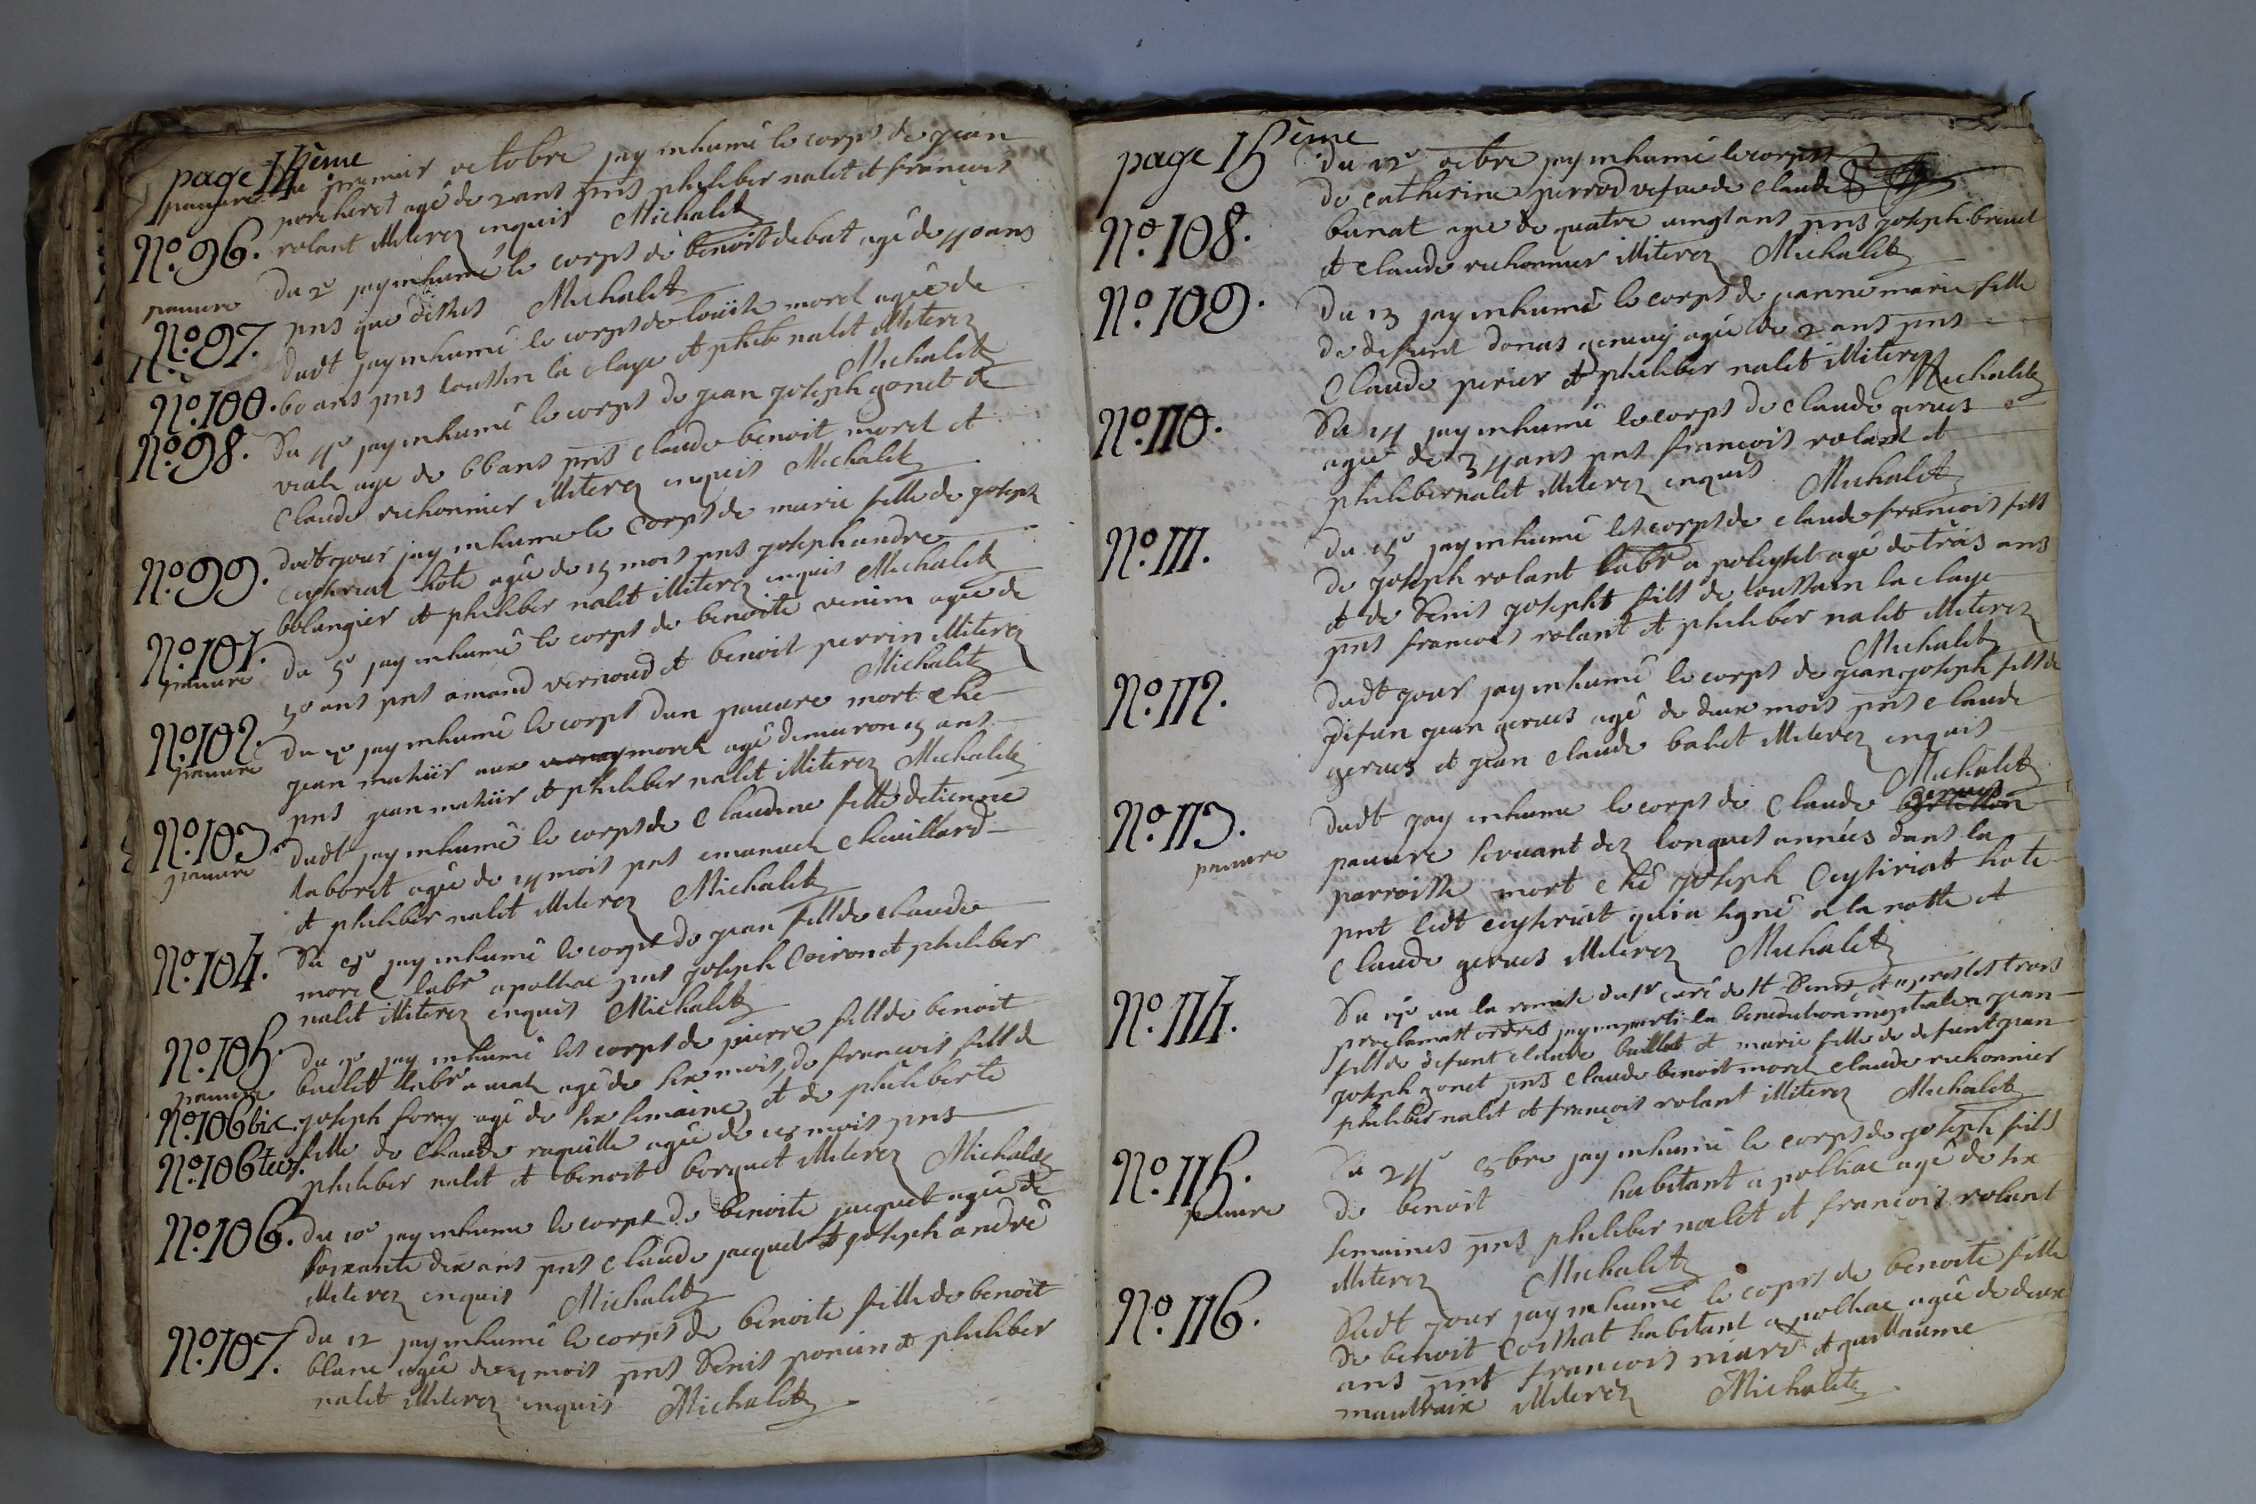 page 14ème
pauvre
du premier octobre jay inhumé le corps de jean
porcheret agé de 2 ans pns philiber nalet et francois
No. 96. rolant illiterez enquis Michalet
pauvre du 2e jay inhumé le corps de benoit debat agé de 40 ans
No. 97. pns que dessus Michalet
dudt jay inhumé le corps de louise morel agée de
No. 100. 60 ans pns toussin la claye et philib nalet illiterez
Michalet
No. 98. Du 4e jay inhumé le corps de jean joseph gonet de
viale age de 66 ans pns claude benoit morel et
claude richonnier illiterez enquis Michalet
No. 99. dudt jour jay inhumé le corps de marie fille de joseph
hote agée de 15 mois pns joseph andre
bolangier et philiber nalet illiterez enquis Michalet
No. 101. Du 5e jay inhumé le corps de benoite venin agée de
pauvre
50 ans pns amand vernoud et benoit perrin illiterez
Michalet
No. 102. Du 7e jay inhumé le corps dun pauvre mort ché
pauvre jean mathier aux morel agé demviron 15 ans
pns jean mathier et philiber nalet illiterez Michalet
No. 103. dudt jay inhumé le corps de claudine fille detienne
pauvre laboret agée de 14 mois pns emanuel cheuillard
et philiber nalet illiterez Michalet
No. 104. Du 8e jay inhumé le corps de jean fils de claude
morel labr a polliac pns joseph Coiron et philiber
nalet illiterez enquis Michalet
No. 105. du 9e jay inhumé les corps de pierre fils de benoit
pauvre buellet labr a viale agé de six mois, de francois fils de
No. 106 bic. joseph foray agé de six semaine, et de philiberte
No. 106 ters. fille de claude raquille agée de 18 mois pns
philiber nalet et benoit borquet illiterez Michalet
No. 106. du 10e jay inhumé le corps de benoite jacquet agée de
soixante dix ans pns claude jacquet et joseph andre
illiterez enquis Michalet
No. 107. du 12 jay inhumé le corps de benoite fille de benoit
blanc agée de mois pns Denis poncin et philiber
nalet illiterez enquis Michalet
page 15ème
du 12e octbre jay inhumé le corps
de catherine perrod vefue de claude
No. 108. bunat agée de quatre uingt ans pns joseph brivet
et claude richonnier illiterez Michalet
No. 109. Du 13 jay inhumé le corps de janne marie fille
de defunt donas genevey agée de 2 ans pns
Claude perier et philiber nalet illiterez
Michalet
No. 110. Du 14 jay inhumé le corps de claude gerues
agée de 34 ans pns francois rolant et
philiber nalet illiterez enquis Michalet
No. 111. Du 15e jay inhumé les corps de claude francois fils
de joseph rolant labr a agé de trois ans
et de Denis joseph fils de toussain la claye
pns francois rolant et philiber nalet illiterez
Michalet
No. 112. dudt jour jay inhumé le corps de jean joseph fils de
difun jean gerues agé de deux mois pns claude
gerues et jean claude balet illiterez enquis
Michalet
No. 113. dudt jay inhumé le corps de claude gerues
pauvre pauvre servant dez longues années dans la
parroisse mort ché joseph hote
pnt ledt qui a signé a la notte et
claude gerues illiterez Michalet
No. 114. Du 17e uu la remise du sr curé de st Denis, et apres les trois
proclamatt ordres jay imparti la benediction nuptiale a jean
fils de defunt claude buillet et marie fille de defunt jean
joseph gonet pns claude benoit morel claude richonnier
philiber nalet et francois rolant illiterez Michalet
No. 115. Du 24e 8bre jay inhumé le corps de joseph fils
pauvre de benoit habitant a polliac agé de six
semaines pns philiber nalet et francois rolant
illiterez Michalet
No. 116. Dudt jour jay inhumé le corps de benoite fille
de benoit habitant a polliac agée de deux
ans pns francois niare et guillaume
illiterez Michalet